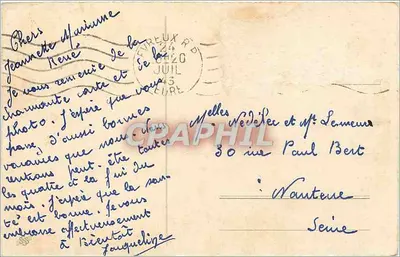 Chers
Jeannette Marianne
René
Je vous remercie de la
charmante carte et de la
photo. J'espère que vous
d'aussi bonnes
vacances que nous. Nous
rentrons peut-être toutes
les quatre à la fin du
mois. J'espère que la san-
té est bonne. Je vous
embrasse affectueusement
à Bientôt
Jacqueline
EVREUX R.P.
24
JUIL
EURE
CPARPHIL
Melles Nédélec et Mr
30 rue Paul Bert
Nanterre
Seine